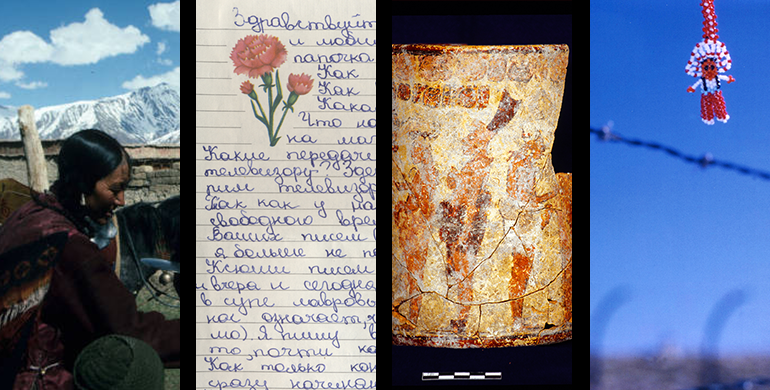 Здравствуйт
и люби
папочка
Как
Как
Кака
Что но
на ма
Какие передачи
телевизору?
рим телевизор
так как у на
свободного врем
Ваших писем
я больше не
Ксюши писем
и вчера и сегодня
в супе лавровы
нас означает,
мо). Я пишу
то, почти ка
Как только кон
сразу начинаю